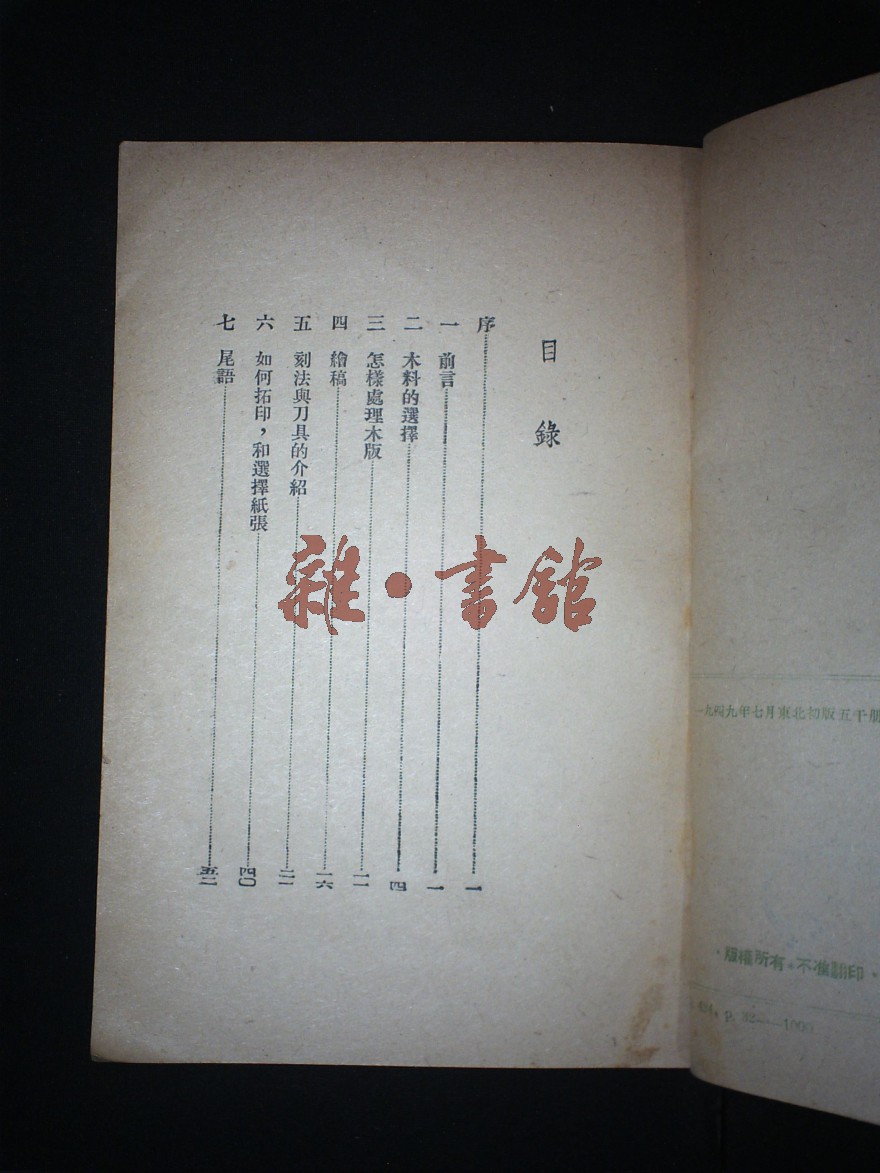 目錄
序……一
一 前言……一
二 木料的選擇……四
三 怎樣處理木版……一一
四 繪稿……一六
五 刻法與刀具的介紹……二一
六 如何拓印，和選擇紙張……四〇
七 尾語……五二
雜•書館
一九四九年七月東北初版五千册
·版權所有·不准翻印·
p. 32——1000